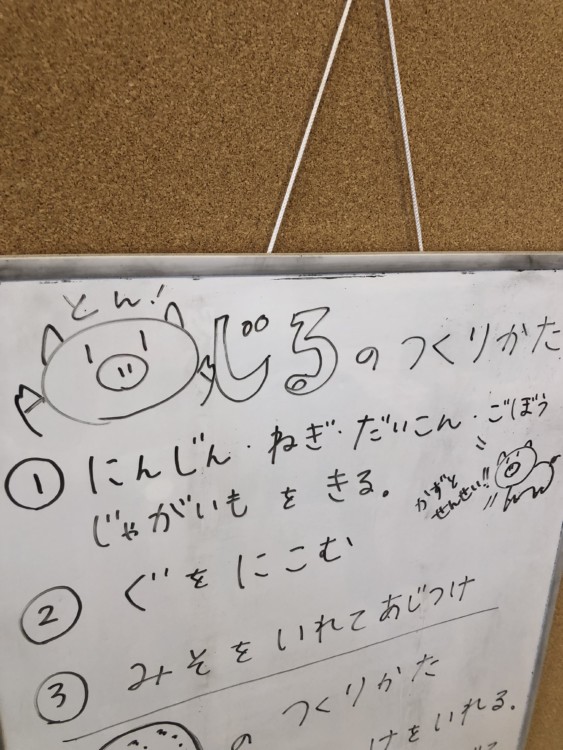 とん!
じるのつくりかた
① にんじん・ねぎ・だいこん・ごぼう
じゃがいもをきる。
かずと
せんせい!!
② ぐをにこむ
③ みそをいれてあじつけ
のつくりかた
けをいれる。